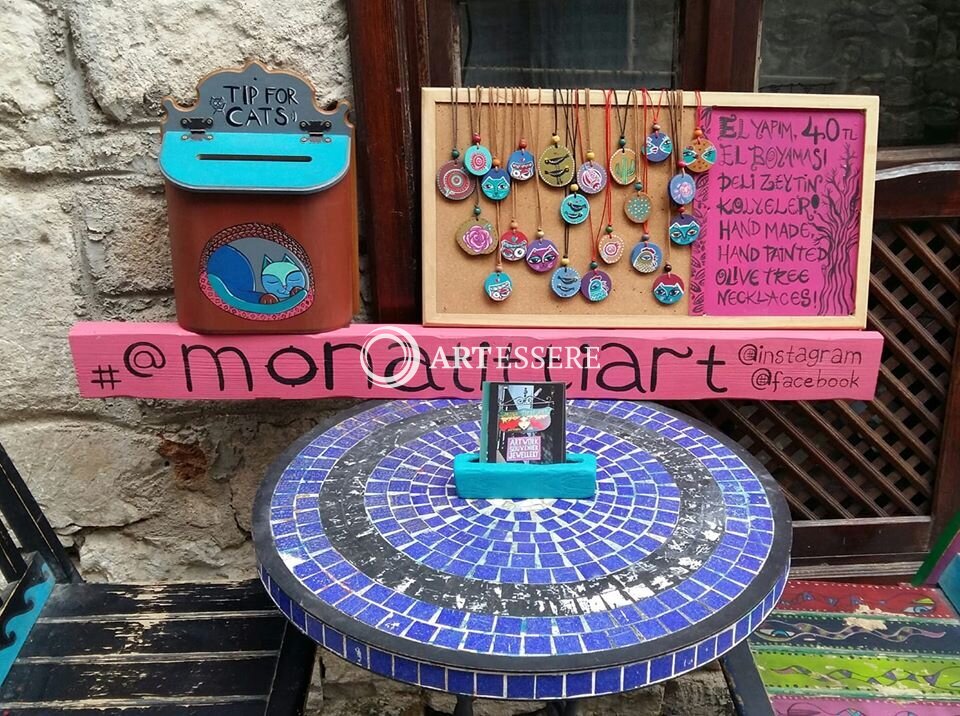 TIP FOR
CATS:)
EL YAPIM, 40 TL
EL BOYAMASI
DELİ ZEYTİN
KOLYELER!
HAND MADE,
HAND PAINTED
OLIVE TREE
NECKLACES!
ARTESSERE
@instagram
@facebook
ARTWORK
SOUVENIR
JEWELLERY